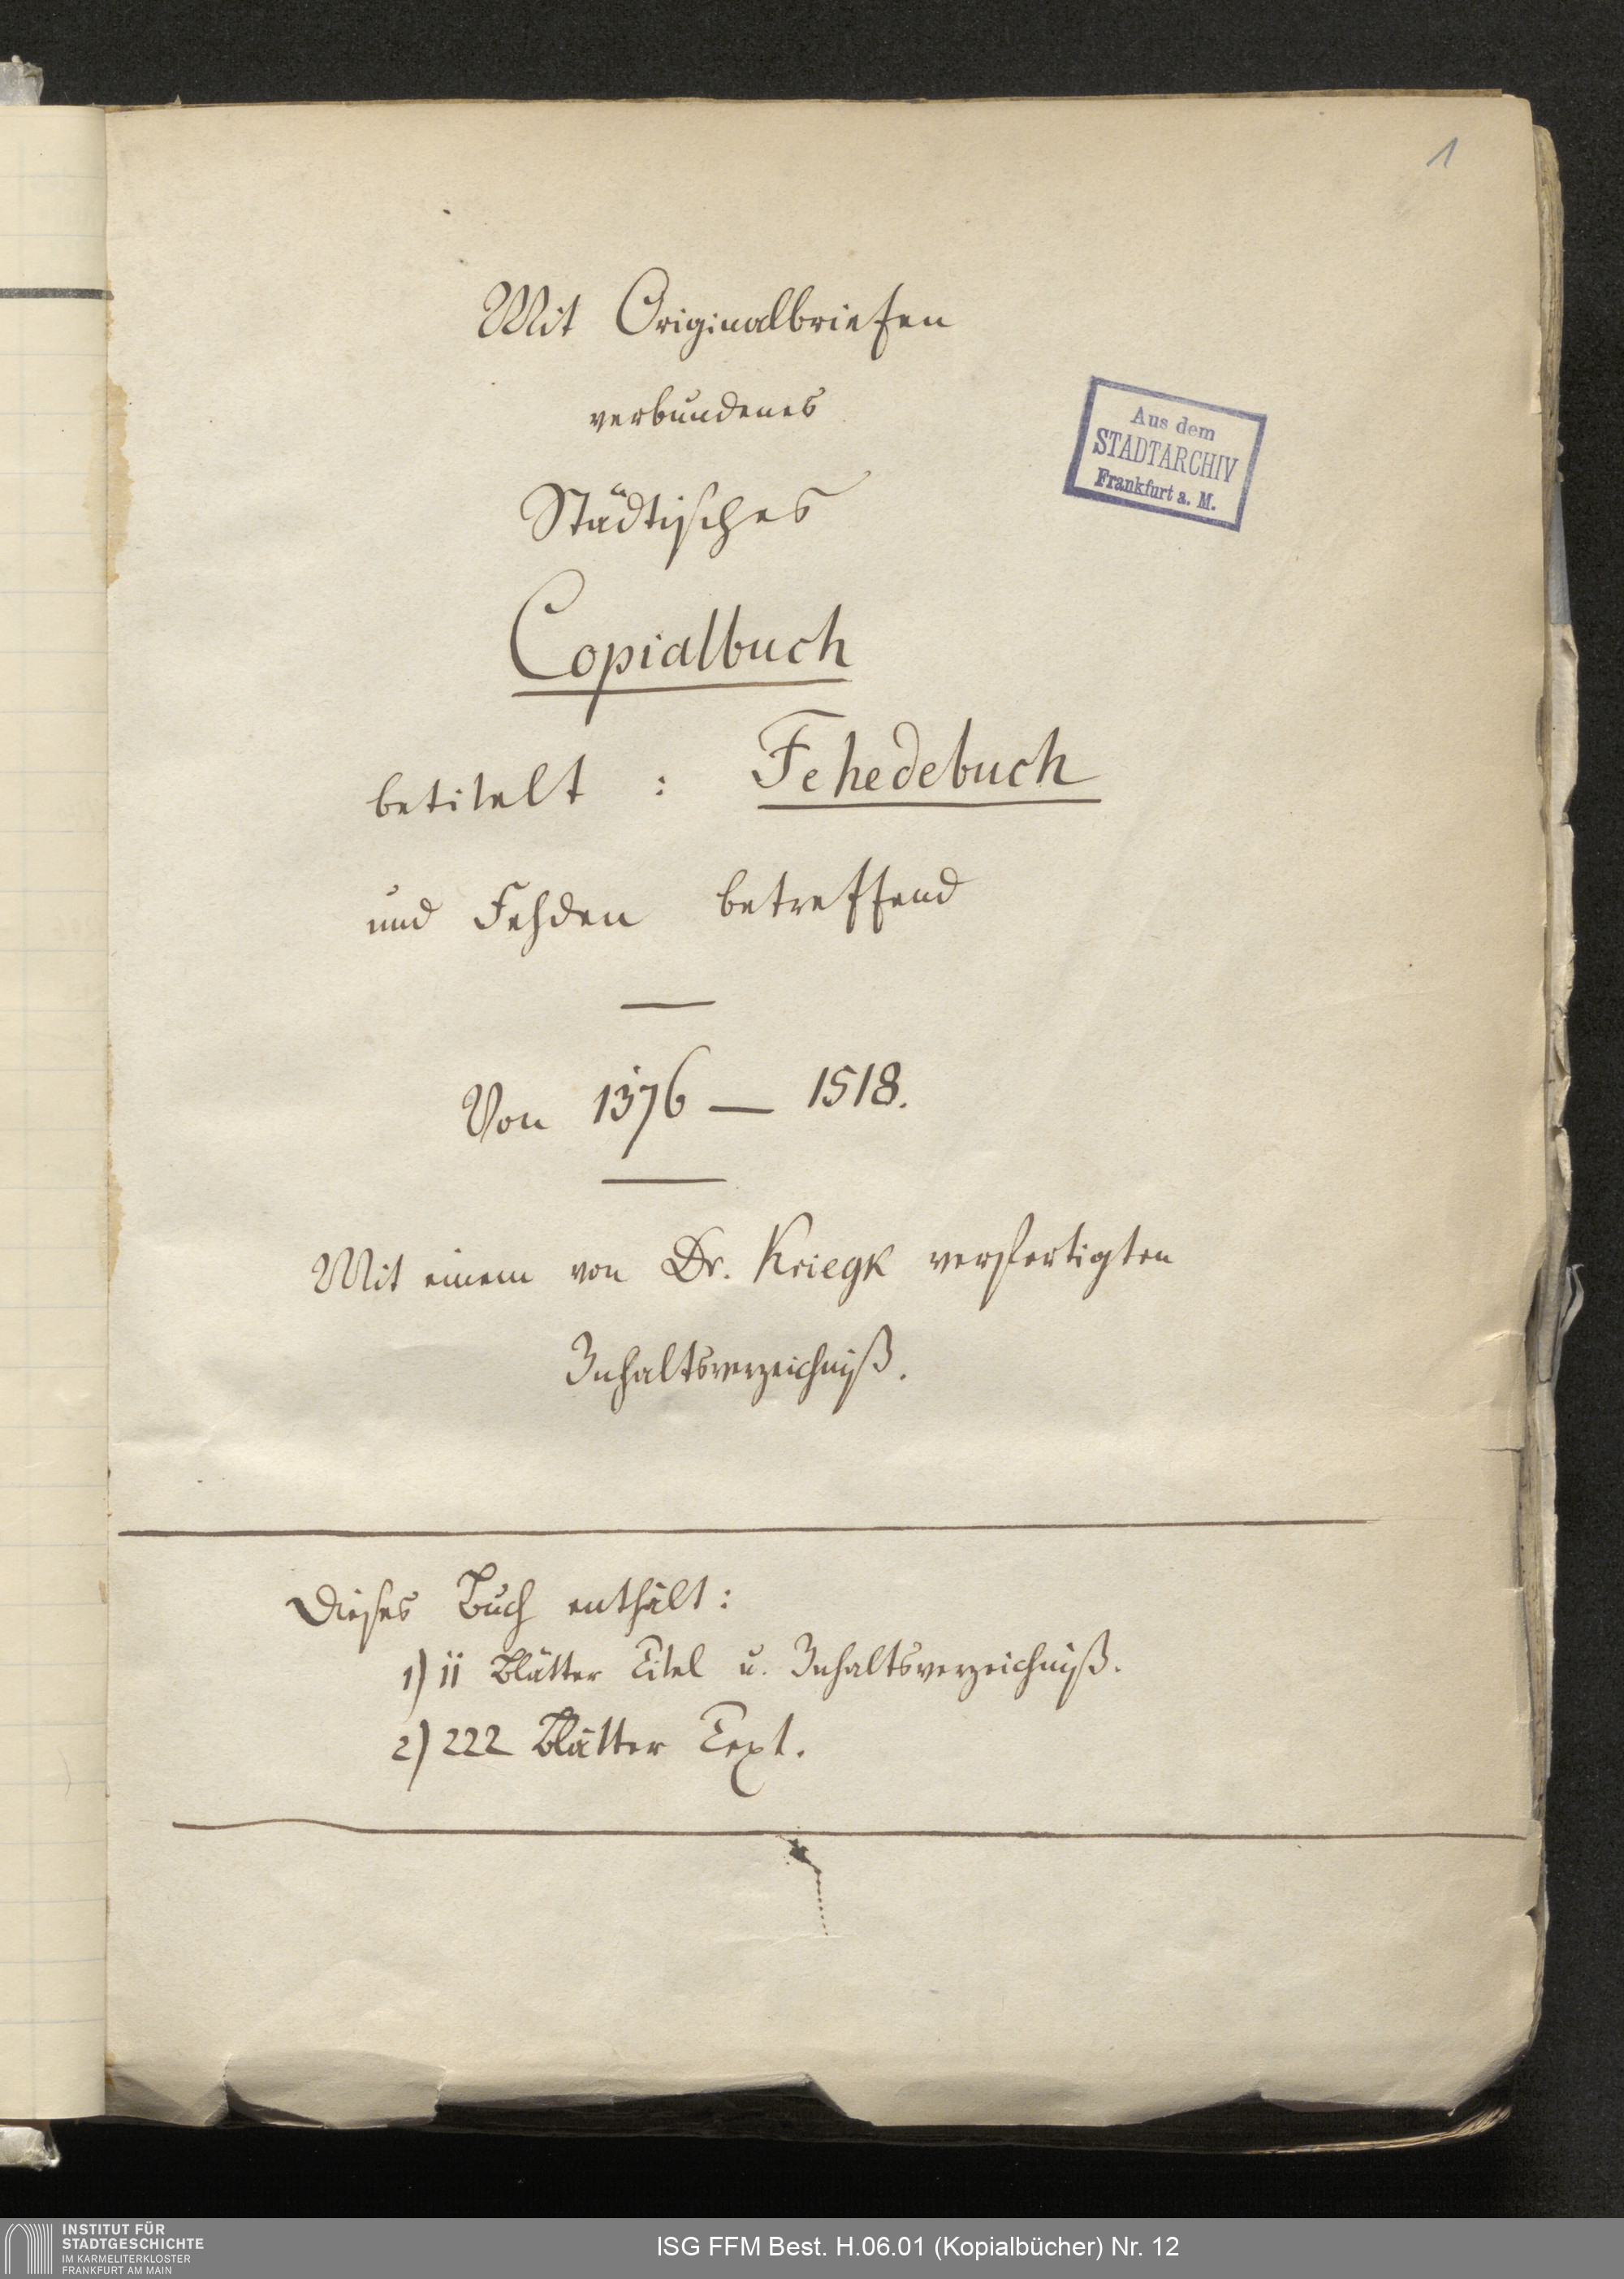 1
Mit Originalbriefen
verbundenes
Städtisches
Copialbuch
betitelt : Fehedebuch
und Fehden betreffend
Von 1376 — 1518.
Mit einem von Dr. Kriegk verfertigten
Inhaltsverzeichniß.
Aus dem
STADTARCHIV
Frankfurt a. M.
Dieses Buch enthält:
1) 11 Blätter Titel u. Inhaltsverzeichniß.
2) 222 Blätter Text.
INSTITUT FÜR
STADTGESCHICHTE
IM KARMELITERKLOSTER
FRANKFURT AM MAIN
ISG FFM Best. H.06.01 (Kopialbücher) Nr. 12